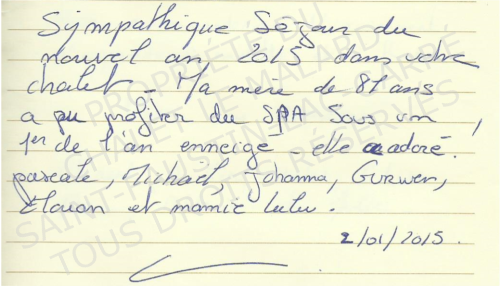 Sympathique Séjour du
nouvel an 2015 dans votre
chalet - Ma mère de 87 ans
a pu profiter du SPA Sous un
1er de l'an enneigé - elle a adoré !
pascale, Michaël, Johanna, Gurwen,
Elouan et mamie lulu.
2/01/2015.
PROPRIÉTÉ DU
CHALET LE MALARD
TOUS DROITS RÉSERVÉS